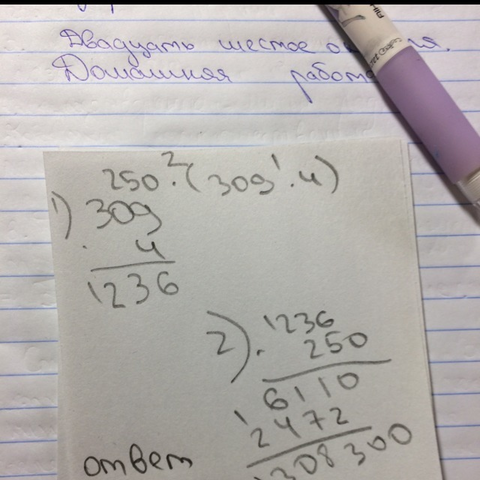 Двадцать шестое
Домашняя
250 · (309 · 4)
2 1
1) 309
· 4
1236
2) · 1236
250
6110
1
2472
1308300
ответ